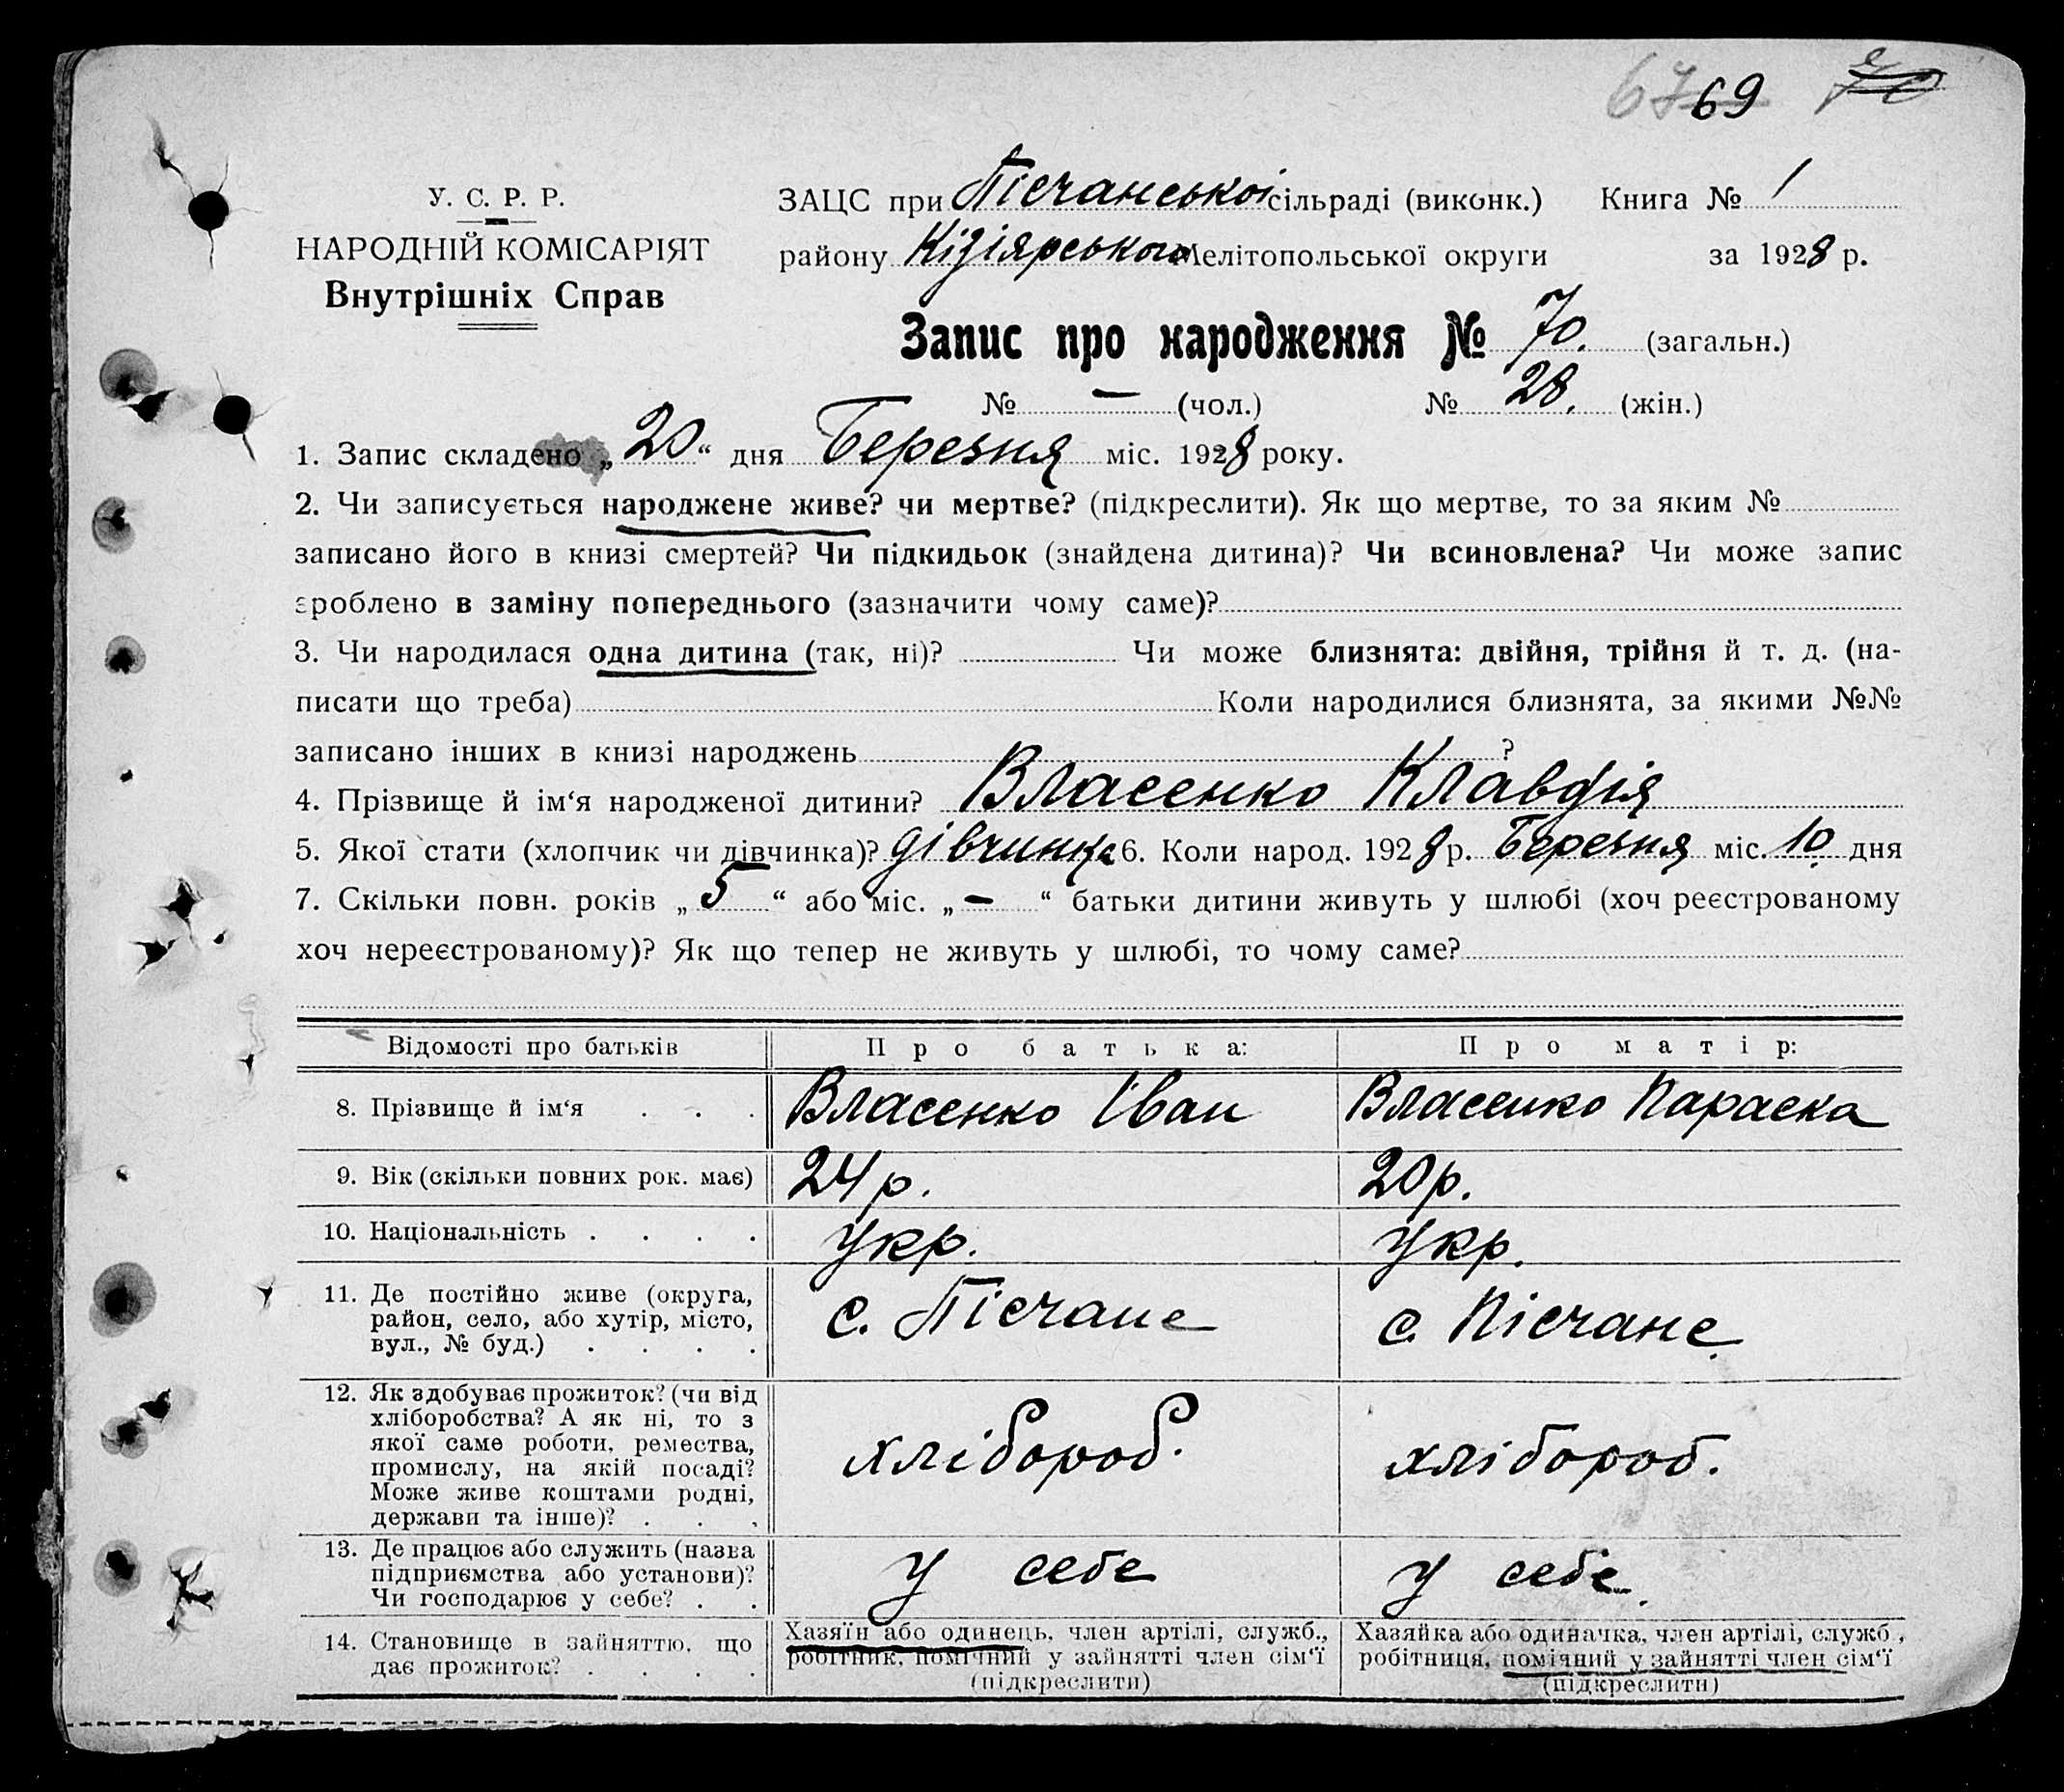 67 69 70
У. С. Р. Р.
НАРОДНІЙ КОМІСАРІЯТ
Внутрішніх Справ
ЗАЦС при Пісчанської сільраді (виконк.) Книга № 1
району Кізіярського Мелітопольської округи за 1928 р.
Запис про народження № 70. (загальн.)
№ — (чол.) № 28. (жін.)
1. Запис складено „ 20 “ дня Березня міс. 1928 року.
2. Чи записується народжене живе? чи мертве? (підкреслити). Як що мертве, то за яким №
записано його в книзі смертей? Чи підкидьок (знайдена дитина)? Чи всиновлена? Чи може запис
зроблено в заміну попереднього (зазначити чому саме)?
3. Чи народилася одна дитина (так, ні)? Чи може близнята: двійня, трійня й т. д. (на-
писати що треба) Коли народилися близнята, за якими №№
записано інших в книзі народжень ?
4. Прізвище й ім‘я народженої дитини? Власенко Клавдія
5. Якої стати (хлопчик чи дівчинка)? дівчинка 6. Коли народ. 1928 р. Березня міс. 10 дня
7. Скільки повн. років „ 5 “ або міс. „ — “ батьки дитини живуть у шлюбі (хоч реєстрованому
хоч нереєстрованому)? Як що тепер не живуть у шлюбі, то чому саме?
Відомості про батьків Про батька: Про матір:
8. Прізвище й ім‘я . . . Власенко Іван Власенко Параска
9. Вік (скільки повних рок. має) 24 р. 20 р.
10. Національність . . . . укр. укр.
11. Де постійно живе (округа,
район, село, або хутір, місто,
вул., № буд.) . . . . с. Пісчане с. Пісчане
12. Як здобуває прожиток? (чи від
хліборобства? А як ні, то з
якої саме роботи, ремества,
промислу, на якій посаді?
Може живе коштами родні,
держави та інше)? . . . хлібороб. хлібороб.
13. Де працює або служить (назва
підприємства або установи)?
Чи господарює у себе? . . у себе у себе.
14. Становище в зайняттю, що
дає прожиток? . . . .
Хазяїн або одинець, член артілі, служб.,
робітник, помічний у зайнятті член сім‘ї
(підкреслити)
Хазяйка або одиначка, член артілі, служб.,
робітниця, помічний у зайнятті член сім‘ї
(підкреслити)